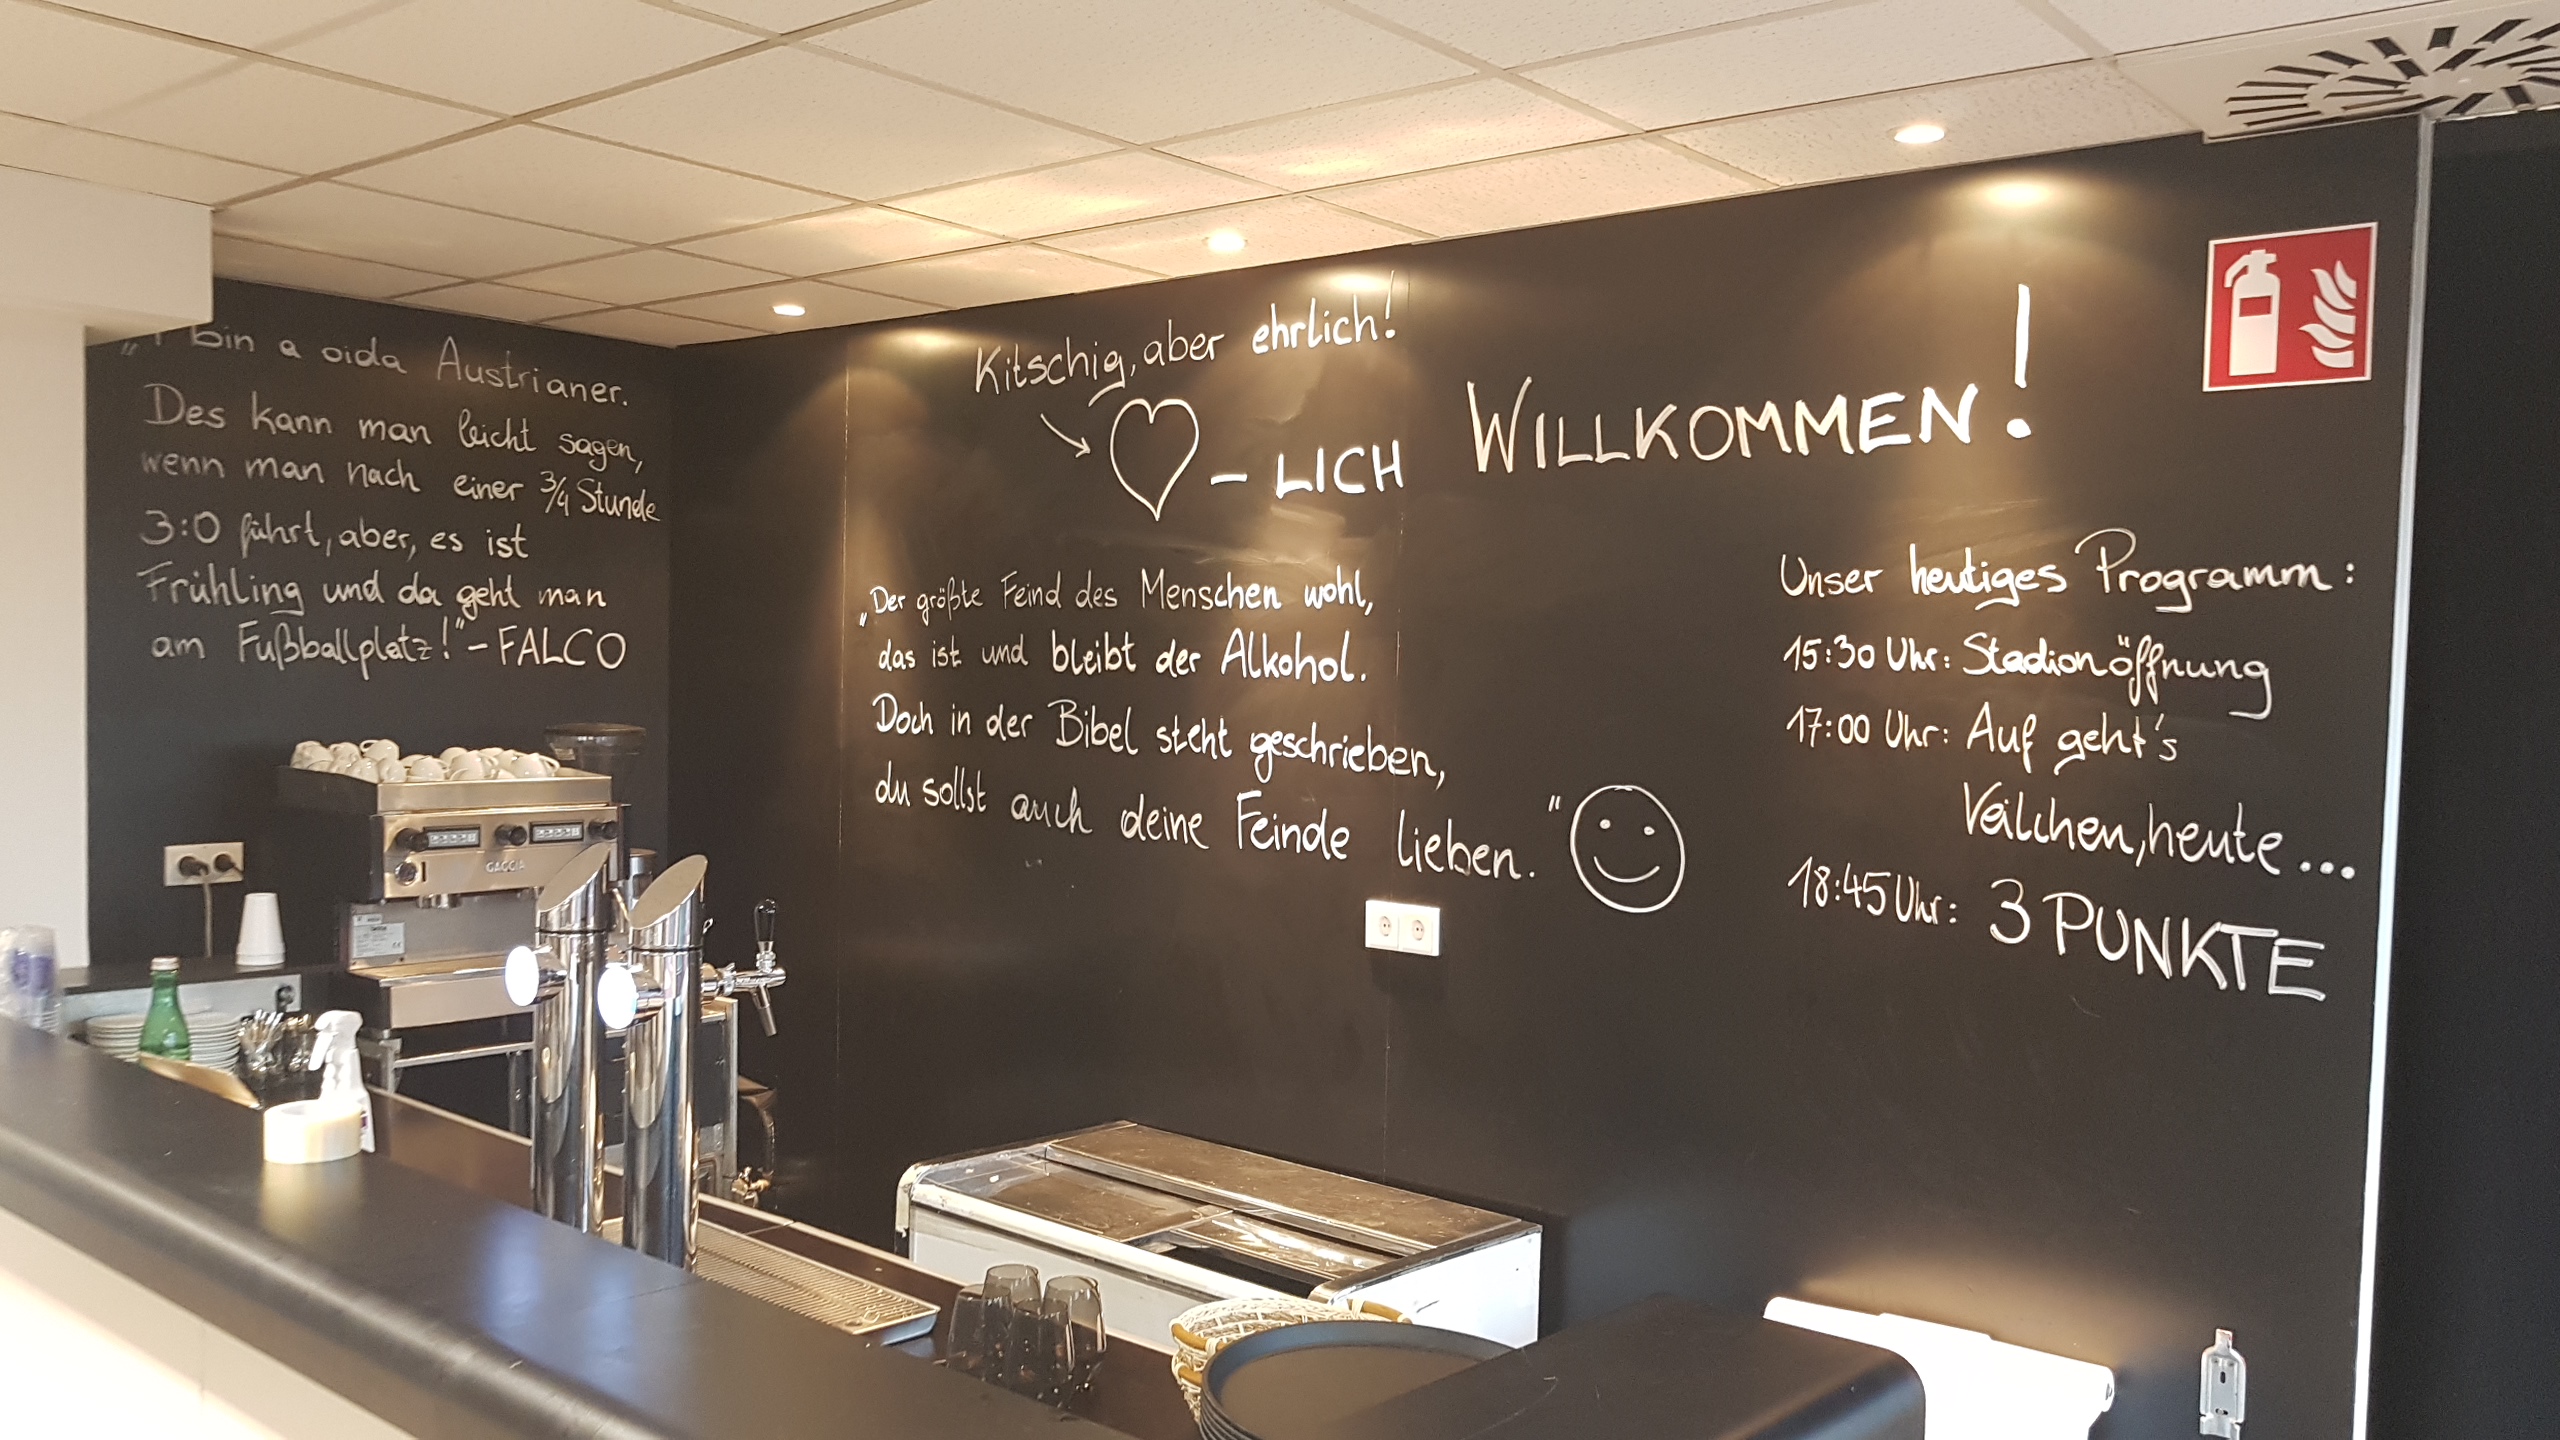 „I bin a oida Austrianer.
Des kann man leicht sagen,
wenn man nach einer 3/4 Stunde
3:0 führt, aber, es ist
Frühling und da geht man
am Fußballplatz!" - FALCO
Kitschig, aber ehrlich!
- LICH
WILLKOMMEN!
„Der größte Feind des Menschen wohl,
das ist und bleibt der Alkohol.
Doch in der Bibel steht geschrieben,
du sollst auch deine Feinde lieben."
Unser heutiges Programm:
15:30 Uhr: Stadionöffnung
17:00 Uhr: Auf geht's
Veilchen, heute...
18:45 Uhr: 3 PUNKTE
GAGGIA